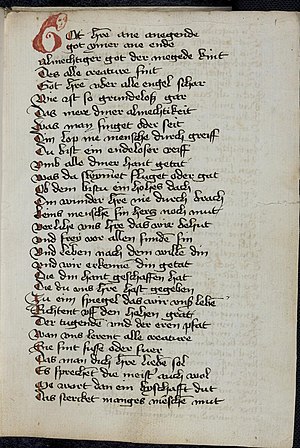 Got hre ane anegende
got ymer ane ende
Almechtiger got der megede kint
Des alle creature sint
Got hre vber alle engel schar
Wie ist so grundeloß gar
Das mere diner almechtikeit
Was man singet oder seit
Din lop nie mensche durch greiff
Du bist ein endeloser reiff
Vmb alle diner hant getat
was da swymet fluget oder gat
Ob dem bistu ein hohes dach
Din wunder hre nie durch brach
Keins mensche sin herz noch mut
verliche vns hre das wir behut
Vnd frey vor allen sunde sin
Vnd leben nach dem wille din
Vnd wir erkenne din getat
Die din hant geschaffen hat
Die du vns hre hast gegeben
Zu ein spiegel das wir vnß lebe
Richtent vff den hohen grat
Der tugende vnd der eren pfat
Wan vns lerent alle creature
Sie sint susse oder suer
Das man dich hre liebe sol
Es sprechet die meist auch wol
De wort dan ein byschafft dut
Das stercket manges mesche mut